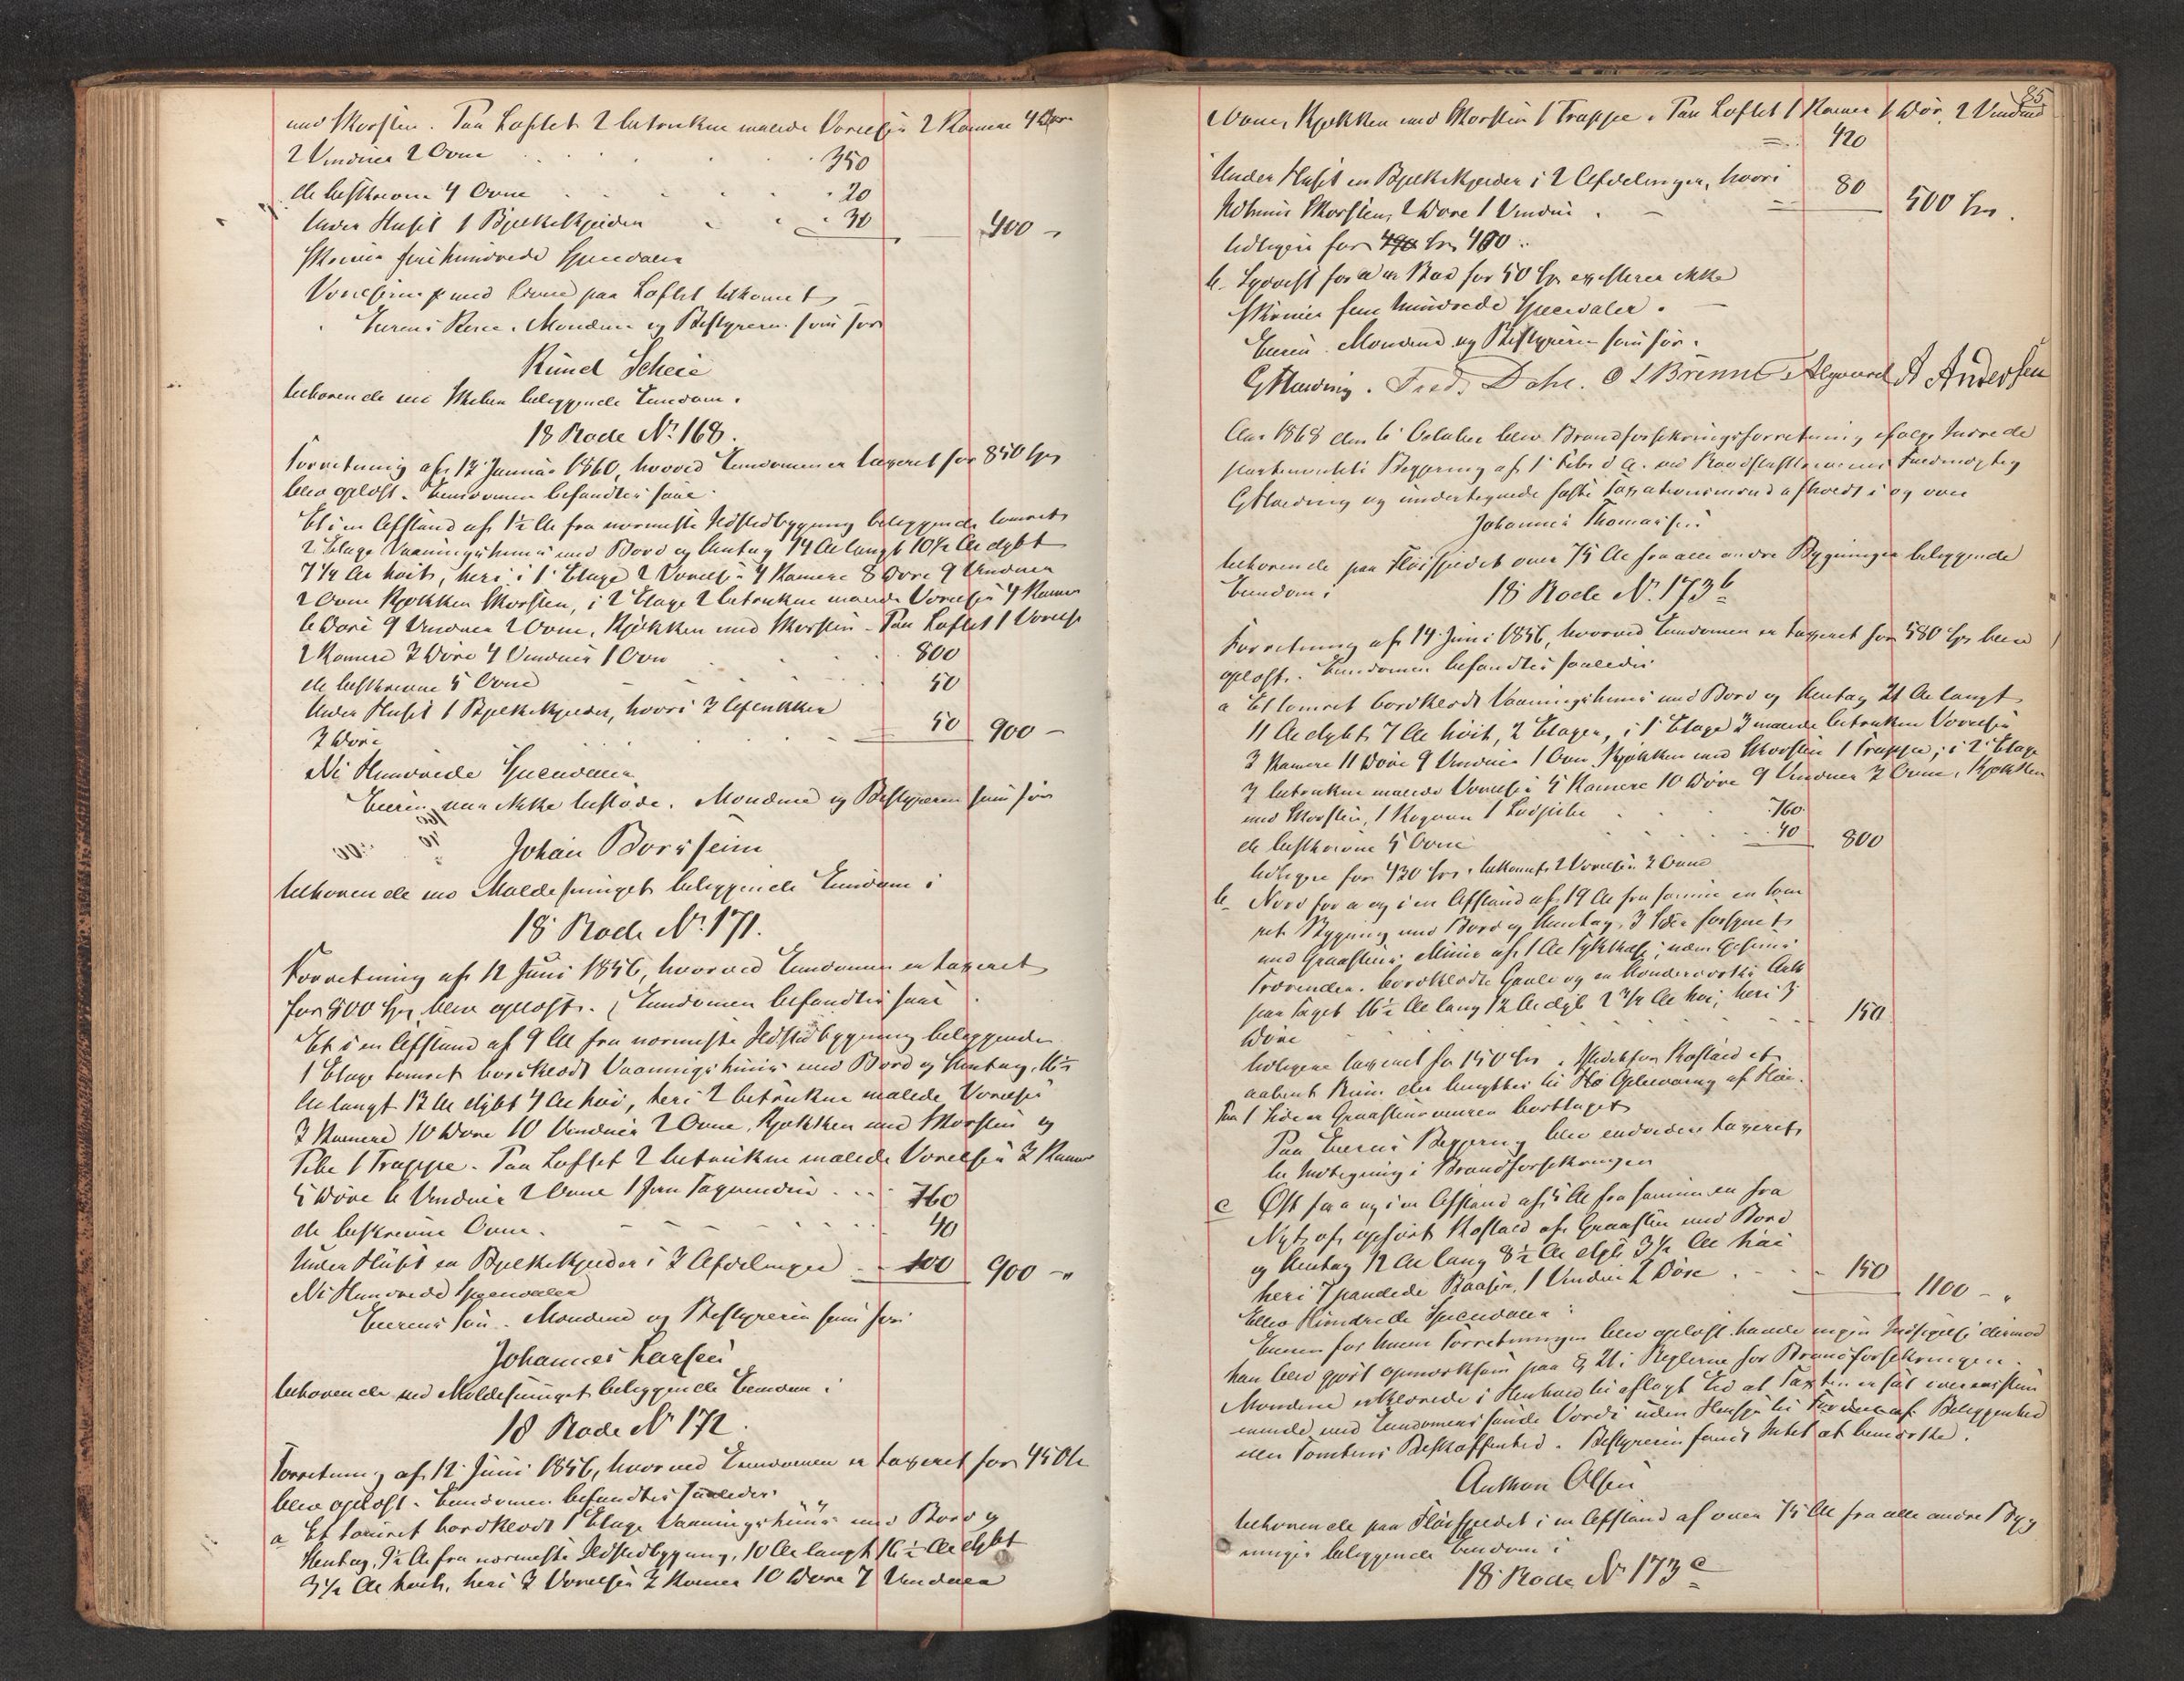 med Skorsten. Paa Loftet 2 betrukne malede Vorelser 2 Kamere 4 Døre
2 Vinduer 2 Ovne 350
de beskrevne 4 Ovne 20
Under Huset 1 Bjelkekjelder 30 400 -
Skriver fire hundrede Speciedaler
Vorelserne med Ovne paa Loftet tilkomet
Eierens Kone. Mændene og Bestyreren som før
Rund Scheie
tilhørende ved Skolen beliggende Eiendom.
18 Rode No 168.
Forretning af 12 Januar 1860, hvorved Eiendommen er taxeret for 850 Spd
blev oplæst. Eiendommen befandtes saal.
Et i en Afstand af 1½ Al fra nærmeste Ildstedbygning beliggende tømret
2 Etage Vaaningshuus med Bord og Steentag 14 Al langt 10½ Al dybt
7¼ Al høit, heri i 1. Etage 2 Vorelser 4 Kamere 8 Døre 9 Vinduer
2 Ovne Kjøkken Skorsten, i 2 Etage 2 betrukne malede Vorelser 4 Kamer
6 Døre 9 Vinduer 2 Ovne, Kjøkken med Skorsten - Paa Loftet 1 Vorelse
2 Kamere 3 Døre 4 Vinduer 1 Ovn 800
de beskrevne 5 Ovne 50
Under Huset 1 Bjelkekjelder, hvori 3 Aflukker
3 Døre 50 900 -
Ni Hundrede Speciedaler
Eieren var ikke tilstede. Mændene og Bestyreren som før
Johan Borsheim
tilhørende ved Møldesvinget beliggende Eiendom i
18 Rode No 171.
Forretning af 12 Juni 1856, hvorved Eiendommen er taxeret
for 800 Spd blev oplæst. Eiendommen befandtes saal.
Et i en Afstand af 9 Al fra nærmeste Ildstedbygning beliggende
1 Etage tømret bordklædt Vaaningshuus med Bord og Steentag, 16½
Al langt 12 Al dybt 4 Al høi, heri 2 betrukne malede Vorelser
3 Kamere 10 Døre 10 Vinduer 2 Ovne, Kjøkken med Skorsten og
Pibe 1 Trappe. Paa Loftet 2 betrukne malede Vorelser 3 Kamer
5 Døre 6 Vinduer 2 Ovne 1 Jern Tagvindue 760
de beskrevne Ovne 40
Under Huset en Bjelkekjelder i 3 Afdelinger 100 900 - "
Ni Hundrede Speciedaler
Eierens Søn. Mændene og Bestyreren som før
Johannes Larsen
tilhørende ved Møldesvinget beliggende Eiendom i
18 Rode No 172.
Forretning af 12 Juni 1856, hvorved Eiendommen er taxeret for 450
blev oplæst. Eiendommen befandtes saaledes
a Et tømret bordklædt 1 Etage Vaaningshuus med Bord og
Steentag, 9½ Al fra nærmeste Ildstedbygning, 10 Al langt 16½ Al dybt
3½ Al høit, heri 3 Vorelser 3 Kamer 10 Døre 7 Vinduer
85
2 Ovne, Kjøkken med Skorsten 1 Trappe. Paa Loftet 1 Kamer 1 Dør 2 Vinduer
420
Under Huset en Bjelkekjelder i 2 Afdelinger, hvori
Skorsten, 2 Døre 1 Vindue. 80 500 Spd.
tidligere for Spd 400.
b. Sydvest for a en Bod for 50 Spd existerer ikke
Skriver fem hundrede Speciedaler.
Eieren. Mændene og Bestyreren som før.
G Harding. Fred. Dahl. O L Brunn A Andersen
Aar 1868 den 6 October blev Brandforsikringsforretning ifølge Indrede
partementets Begjering af 1 Febr d A. ved Raadstueskriverens Fuldmægtig
G Harding og undertegnede faste Taxationsmænd afholdt i og over
Johannes Thomassens
tilhørende paa Fløifjeldet over 75 Al fra alle andre Bygninger beliggende
Eiendom i
18 Rode No 173 b
Forretning af 14 Juni 1856, hvorved Eiendommen er taxeret for 580 Spd blev
oplæst. Eiendommen befandtes saaledes
a Et tømret bordklædt Vaaningshuus med Bord og Steentag 21 Al langt
11 Al dybt, 7 Al høit, 2 Etager, i 1 Etage 3 malede betrukne Vorelser
3 Kamere 11 Døre 9 Vinduer 1 Ovn Kjøkken med Skorsten 1 Trappe; i 2 Etage
3 betrukne malede Vorelser 5 Kamere 10 Døre 9 Vinduer 3 Ovne, Kjøkken
med Skorsten, 1 Bagerovn 1 760
de beskrevne 5 Ovne 40 800
tidligere for 430 Spd. tilkomet 2 Vorelser 2 Ovne
b. Nord for a og i en Afstand af 19 Al fra samme en tøm
ret Bygning med Bord og Steentag, 3 Sider forsynet
med Graasteens Muur af 1 Al Tykkelse, uden Gesims
bordklædte Gavle og en Ark
paa Taget 16½ Al lang 12 Al dyb 2¾ Al høi, heri 3
Døre 150
tidligere taxeret for 150 Spd. Kostald et
aabent Rum der benyttes til Opbevaring af Høi.
Paa 1 Side er Graasteensmuren borttaget
Paa Eierens Begjering blev endvidere taxeret
til Indtegning i Brandforsikringen
c Øst for a og i en Afstand af 5 Al fra samme en fra
Nyt af opført Kostald af Graasteen med Bord
og Steentag 12 Al lang 8½ Al dyb 3¼ Al høi
heri 7 pandede Baaser, 1 Vindue 2 Døre 150 1100 - "
Elleve Hundrede Speciedaler
Eieren for hvem Forretningen blev oplæst havde ingen Indsigelse dermod
han blev gjort opmærksom paa § 21 i Reglerne for Brandforsikringen.
Mændene erklærede i Henhold til aflagt Ed at Taxten er sat overensstem
mende med Eiendommens sande Værdi uden Hensyn til Fordeel af Beliggenhed
eller Tomtens Beskaffenhed. Bestyreren fandt Intet at bemærke.
Anthon Olsen
tilhørende paa Fløifjeldet i en Afstand af over 75 Al fra alle andre Byg
ninger beliggende Eiendom i
18 Rode No 173 c